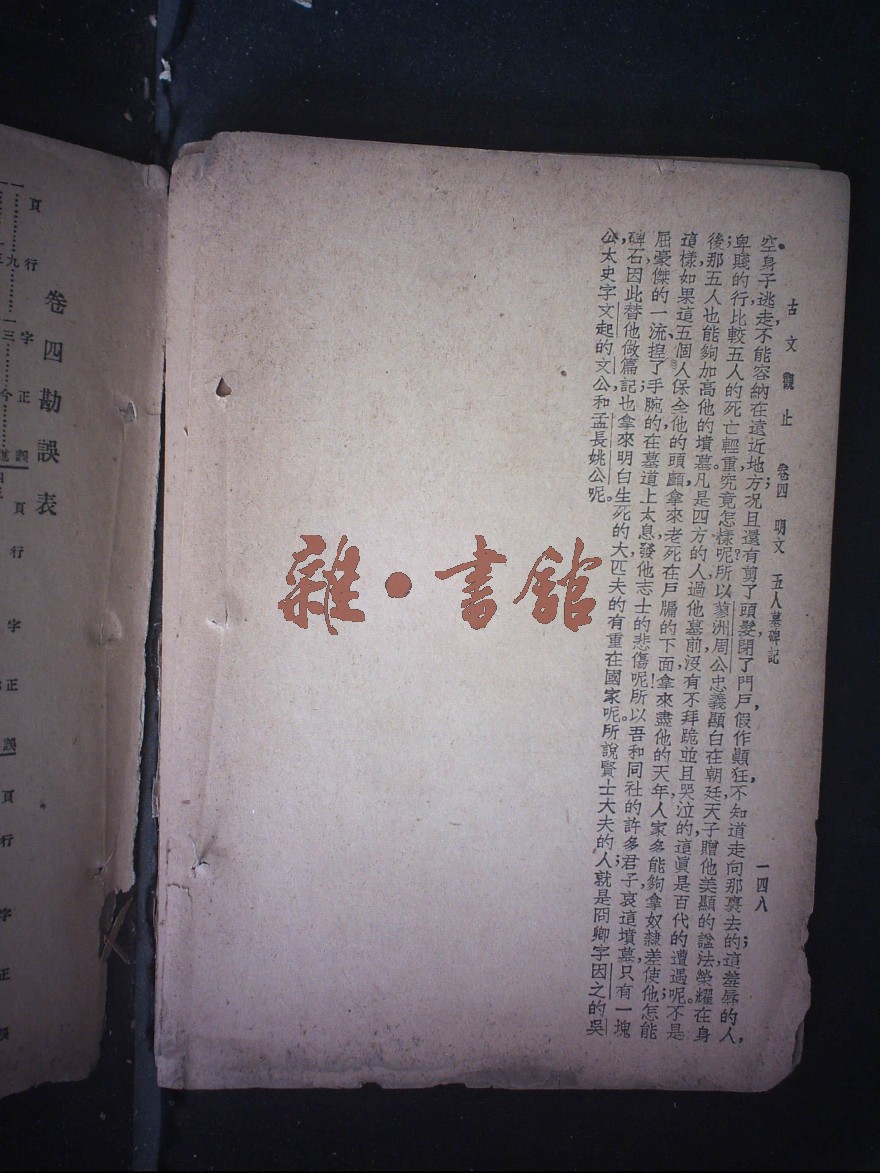 古文觀止　卷四　明文　五人墓碑記　一四八
空身子逃走，不能容納在遠近地方；況且還有剪了頭髮，閉了門戶，假作顚狂，不知道走向那裏去的；這羞辱的人，
卑賤的行，比較五人的死亡，輕重究竟怎樣呢？所以蓼洲周公，忠義顯白在朝廷，天子贈他美顯的諡法，榮耀在身
後；那五人也能夠加高他的墳墓。凡是四方的人，過他墓前，沒有不拜跪並且哭泣的，這眞是百代的遭遇呢。不是
這樣，如果這五個人保全他的頭顱，拿來老死在戶牖的下面，拿來盡他的天年，人家多能夠拿奴隸差使他；怎能
屈豪傑的一流，揑了手腕的在墓道上太息，發他志士的悲傷呢！所以吾和同社的許多君子，哀這墳墓，只有一塊
碑石，因此替他做篇記；也拿來明白生死的大，匹夫的有重在國家呢。所說賢士大夫的人；就是冏卿字因之的吳
公，太史字文起的文公，和孟長姚公呢。
雜•書館
卷四勘誤表
頁　行　字　正　誤
頁　行　字　正　誤
頁　行　字　正　誤